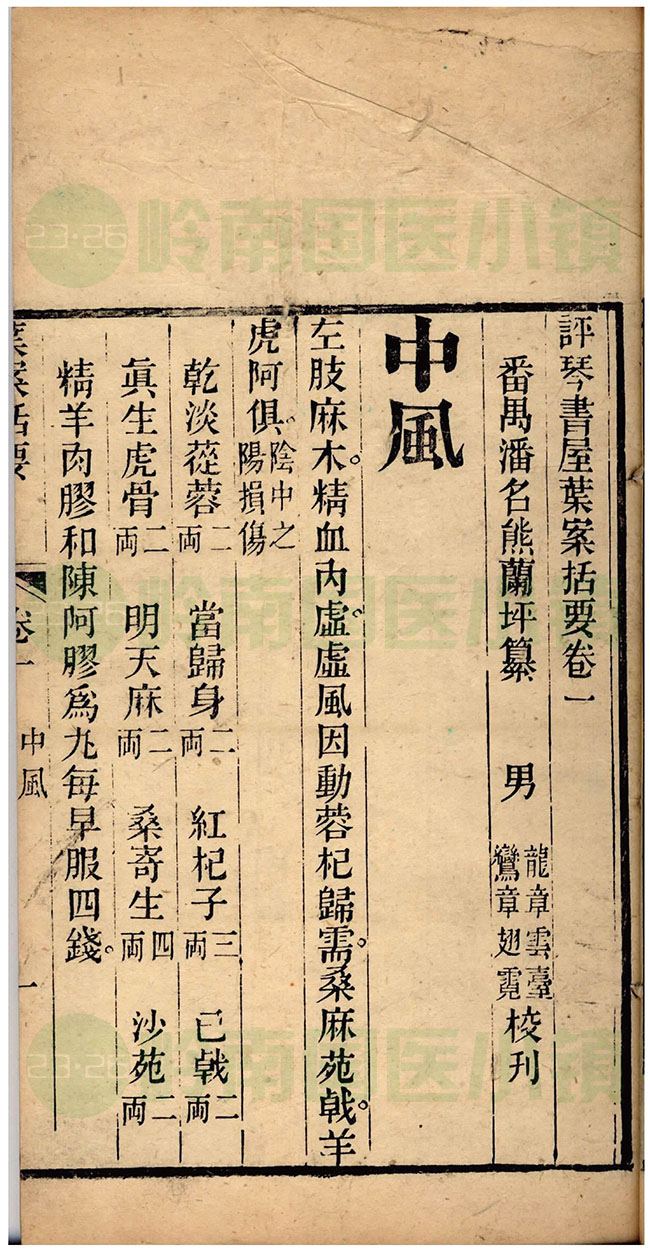 評琴書屋葉案括要卷一
番禺潘名熊蘭坪纂　男龍章雲臺鸞章翅霓校刊
中風
左肢麻木。精血內虛。虛風因動蓉杞歸需。桑麻苑戟。羊
虎阿俱。陰中之陽損傷
乾淡蓯蓉二両　當歸身二両　紅杞子三両　巳戟二両
眞生虎骨二両　明天麻二両　桑寄生四両　沙苑二両
精羊肉膠和陳阿膠為丸每早服四錢。
葉案括要　卷一　中風　一
23·26 岭南国医小镇
23·26 岭南国医小镇
23·26 岭南国医小镇